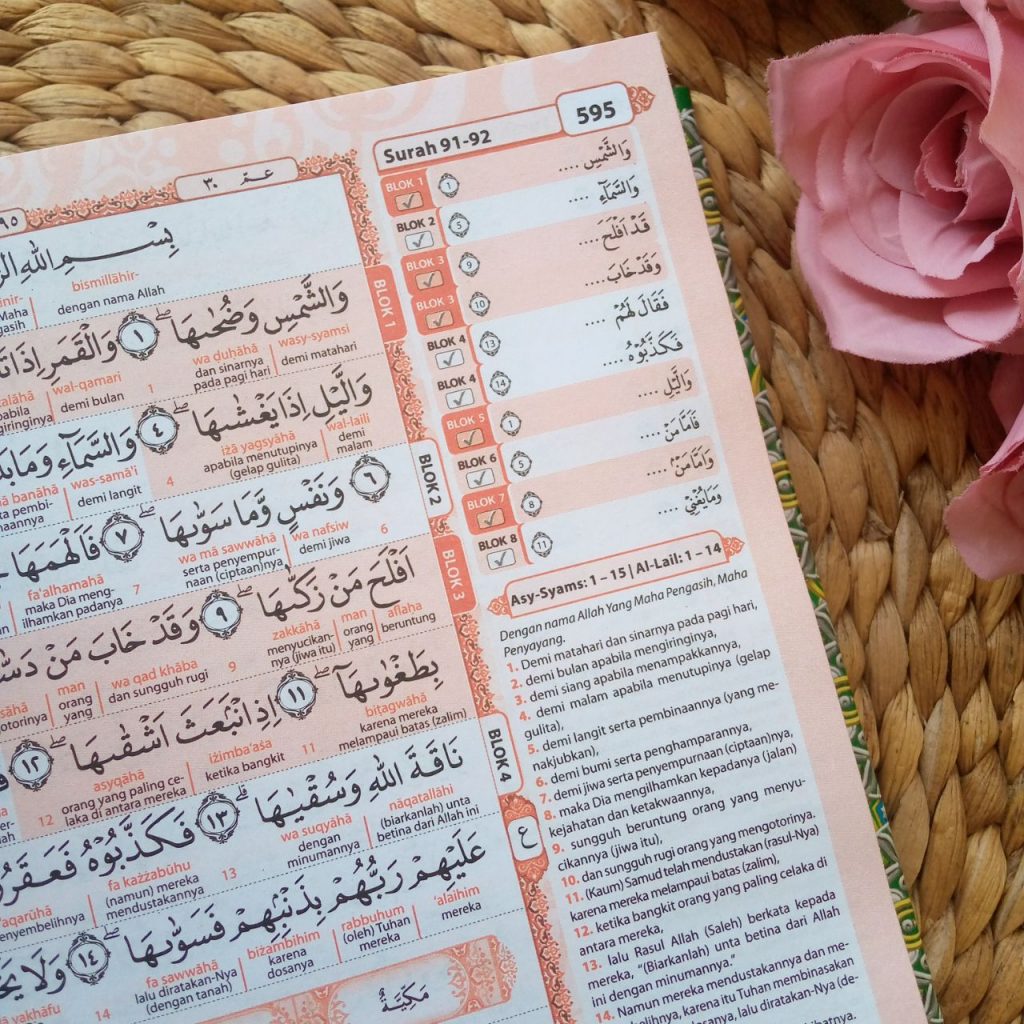 Surah 91-92
595
BLOK 1
١
وَالشَّمْسِ ....
BLOK 2
٥
وَالسَّمَآءِ ....
BLOK 3
٩
قَدْ اَفْلَحَ ....
BLOK 3
١٠
وَقَدْ خَابَ ....
BLOK 4
١٣
فَقَالَ لَهُمْ ....
BLOK 4
١٤
فَكَذَّبُوْهُ ....
BLOK 5
١
وَالَّيْلِ ....
BLOK 6
٥
فَاَمَّا مَنْ ....
BLOK 7
٨
وَاَمَّا مَنْ ....
BLOK 8
١١
وَمَا يُغْنِيْ ....
Asy-Syams: 1 – 15 | Al-Lail: 1 – 14
Dengan nama Allah Yang Maha Pengasih, Maha
Penyayang.
1. Demi matahari dan sinarnya pada pagi hari,
2. demi bulan apabila mengiringinya,
3. demi siang apabila menampakkannya,
4. demi malam apabila menutupinya (gelap
gulita),
5. demi langit serta pembinaannya (yang me-
nakjubkan),
6. demi bumi serta penghamparannya,
7. demi jiwa serta penyempurnaan (ciptaan)nya,
8. maka Dia mengilhamkan kepadanya (jalan)
kejahatan dan ketakwaannya,
9. sungguh beruntung orang yang menyu-
cikannya (jiwa itu),
10. dan sungguh rugi orang yang mengotorinya.
11. (Kaum) Samud telah mendustakan (rasul-Nya)
karena mereka melampaui batas (zalim),
12. ketika bangkit orang yang paling celaka di
antara mereka,
13. lalu Rasul Allah (Saleh) berkata kepada
mereka, "(Biarkanlah) unta betina dari Allah
ini dengan minumannya."
14. Namun mereka mendustakannya dan me-
belihnya, karena itu Tuhan membinasakan
dosanya, lalu diratakan-Nya (de-
عمّ ٣٠
بِسْمِ اللهِ
bismillāhir-
dengan nama Allah
BLOK 1
وَالشَّمْسِ وَضُحٰىهَا ۖ ١ وَالْقَمَرِ اِذَا
wasy-syamsi wa ḍuḥāhā 1 wal-qamari
demi matahari dan sinarnya pada pagi hari demi bulan
وَالَّيْلِ اِذَا يَغْشٰىهَا ۖ ٤ وَالسَّمَآءِ وَمَا
wal-laili iżā yagsyāhā 4 was-samā'i
demi malam apabila menutupinya (gelap gulita) demi langit
BLOK 2
٦ وَنَفْسٍ وَّمَا سَوّٰىهَا ۖ ٧ فَاَلْهَمَهَا
6 wa nafsiw wa mā sawwāhā 7 fa'alhamahā
demi jiwa serta penyempurnaan (ciptaan)nya maka Dia mengilhamkan padanya
BLOK 3
اَفْلَحَ مَنْ زَكّٰىهَا ۖ ٩ وَقَدْ خَابَ مَنْ
aflaha man zakkāhā 9 wa qad khāba man
beruntung orang yang menyucikannya (jiwa itu) dan sungguh rugi orang yang
بِطَغْوٰىهَآ ۖ ١١ اِذِ انْۢبَعَثَ اَشْقٰىهَا ۖ ١٢
biṭagwāhā 11 iżimba'aṡa asyqāhā 12
karena mereka melampaui batas (zalim) ketika bangkit orang yang paling celaka di antara mereka
BLOK 4
نَاقَةَ اللهِ وَسُقْيٰهَا ۗ ١٣ فَكَذَّبُوْهُ
nāqatallāhi wa suqyāhā 13 fa każżabūhu
(biarkanlah) unta betina dari Allah ini dengan minumannya (namun) mereka mendustakannya
ع
عَلَيْهِمْ رَبُّهُمْ بِذَنْۢبِهِمْ فَسَوّٰىهَا ۖ ١٤ وَلَا
'alaihim rabbuhum biżambihim fa sawwāhā 14
mereka (oleh) Tuhan mereka karena dosanya lalu diratakan-Nya (dengan tanah)
مَكِّيَّةٌ